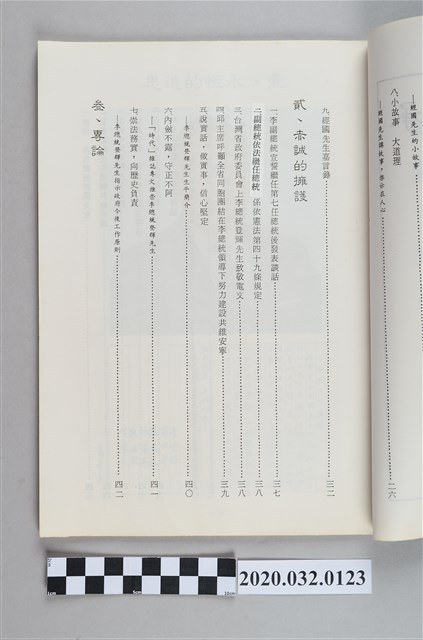 經國先生的小故事
八、小故事 大道理
—經國先生講故事，啓示在人心 二六
九、經國先生嘉言錄 三二
貳、赤誠的擁護
一、李副總統宣誓繼任第七任總統後發表談話 三七
二、副總統依法繼任總統 係依憲法第四十九條規定 三八
三、台灣省政府委員會上李總統登輝先生致敬電文 三八
四、邱主席呼籲全省同胞團結在李總統領導下努力建設共維安寧 三九
五、說實話，做實事，信心堅定
—李總統登輝先生生平簡介 四〇
六、內斂不露，守正不阿
—「時代」雜誌專文推崇李總統登輝先生 四一
七、崇法務實，向歷史負責
—李總統登輝先生指示政府今後工作原則 四二
叁、專論
1cm 5cm 10cm
2020.032.0123